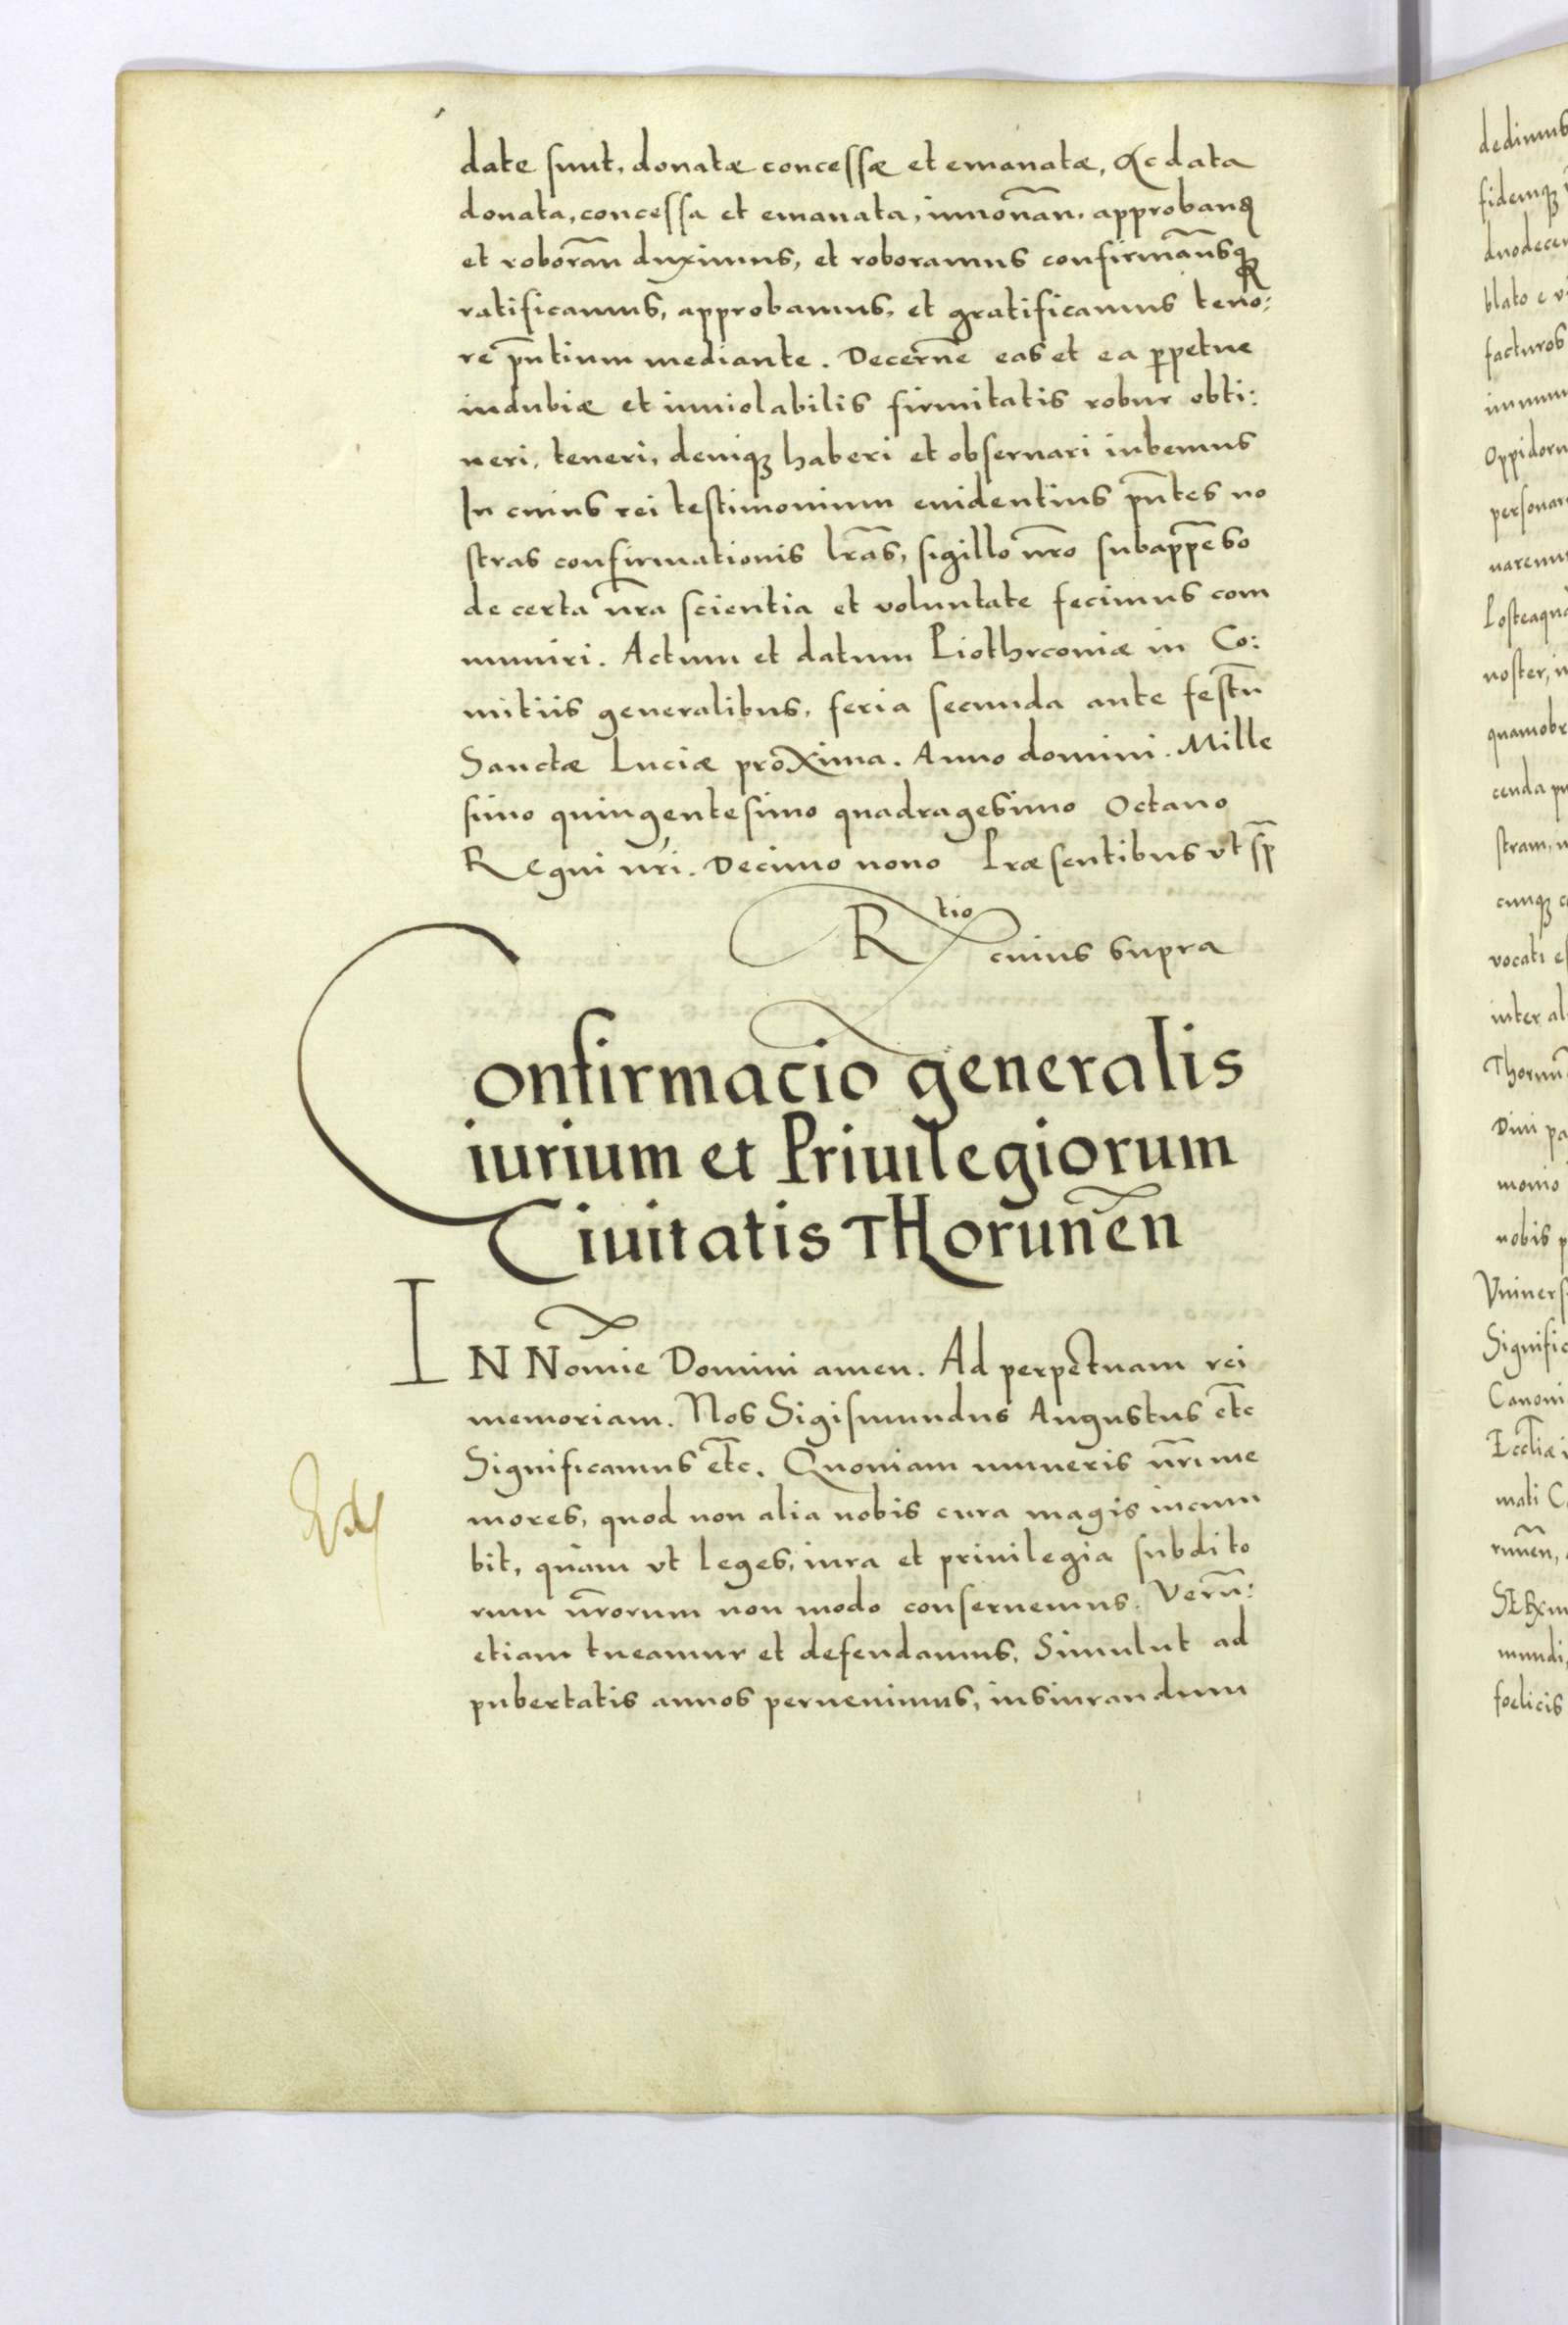 date sunt, donatæ concessæ et emanatæ, Ac data
donata, concessa et emanata, innouañ. approband
et roborañ duximus, et roboramus confirmam̃usqꝫ
ratificamus, approbamus, et gratificamus teno:
re pñtium mediante. Decerñe eas et ea ꝑpetue
indubiæ et inuiolabilis firmitatis robur obti:
neri, teneri, deniqꝫ haberi et obseruari iubemus
In cuius rei testimonium euidentius pñtes no
stras confirmationis lr̃as, sigillo nr̃o subapp̃eso
de certa nr̃a scientia et voluntate fecimus com
muniri. Actum et datum Piothrconiæ in Co:
mitiis generalibus, feria secunda ante festũ
Sanctæ Luciæ proxima. Anno domini. Mille
simo quingentesimo quadragesimo Octauo
REgni nr̃i. Decimo nono Præsentibus vt sp̃
Rtio
cuius supra
Confirmacio generalis
iurium et Priuilegiorum
Ciuitatis THoruneñ
IN Nomĩe Domini amen. Ad perpetuam rei
memoriam. Nos Sigismundus Augustus et̃c
Significamus et̃c. Quoniam muneris nr̃i me
mores, quod non alia nobis cura magis incum
bit, quàm vt leges, iura et priuilegia subdito
rum nr̃orum non modo conseruemus. Verũ:
etiam tueamur et defendamus, Simulut ad
pubertatis annos peruenimus, iusiurandum
dedimus
fidemqꝫ
duodecem
blato e v
facturos
Oppidoru
personar
uaremus
Posteaqua
noster, in
quamobr
cenda pu
stram, u
cunqꝫ c
vocati es
inter al
Thorun
Diui pa
monio
nobis p
Vniuers
Signific
Canoni
Eccl̃iæ i
mati C
runeñ,
mundi,
foelicis